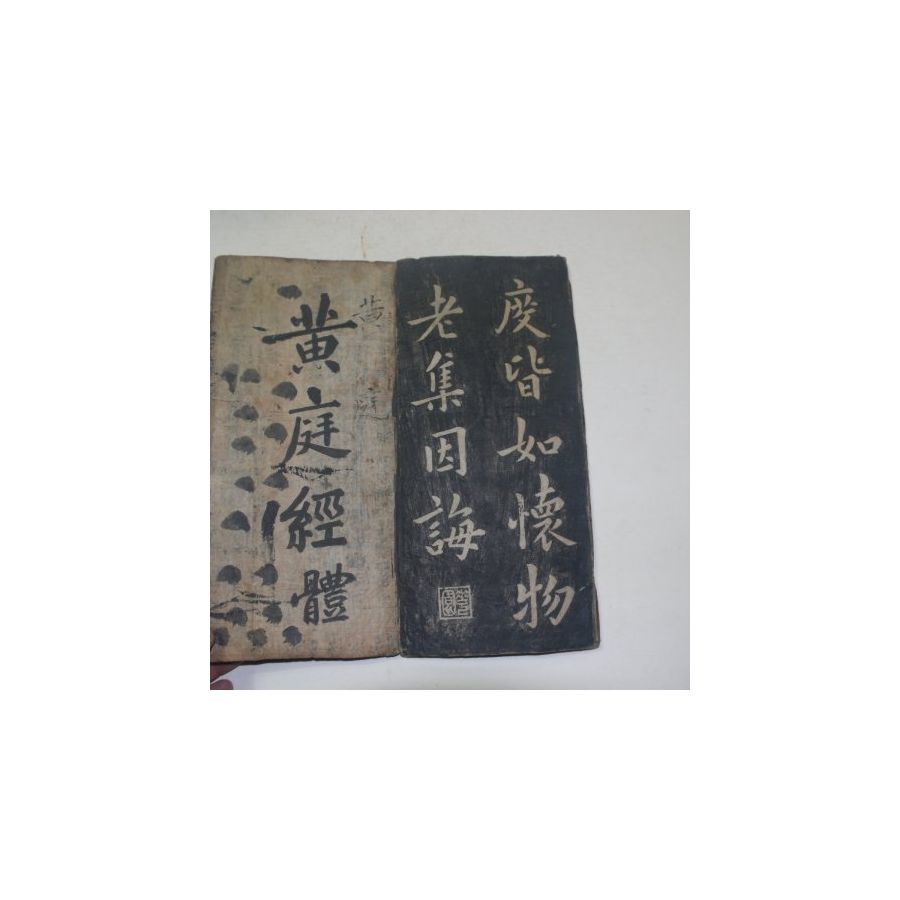 度皆如懷物
老集因誨
黄庭
黄庭經體